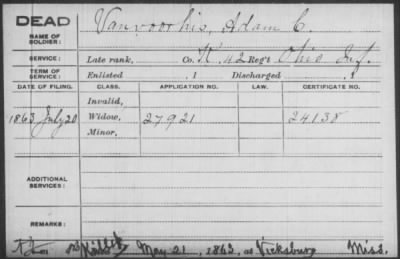 DEAD
NAME OF SOLDIER: Vanvoorhis, Adam C.
SERVICE: Late rank, Co. K. 42 Reg't Ohio Inf.
TERM OF SERVICE: Enlisted , 1 Discharged , 1
DATE OF FILING. CLASS. APPLICATION NO. LAW. CERTIFICATE NO.
Invalid,
1863 July 20 Widow, 27921 24138
Minor,
ADDITIONAL SERVICES:
REMARKS:
Killed May 21, 1863, at Vicksburg Miss.